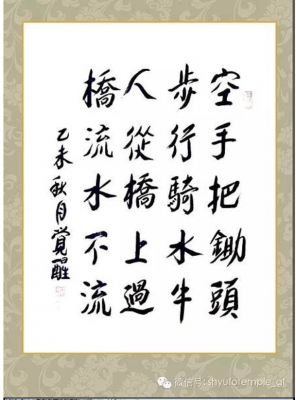 空手把鋤頭
步行騎水牛
人從橋上過
橋流水不流
乙未秋月覺醒
微信号: